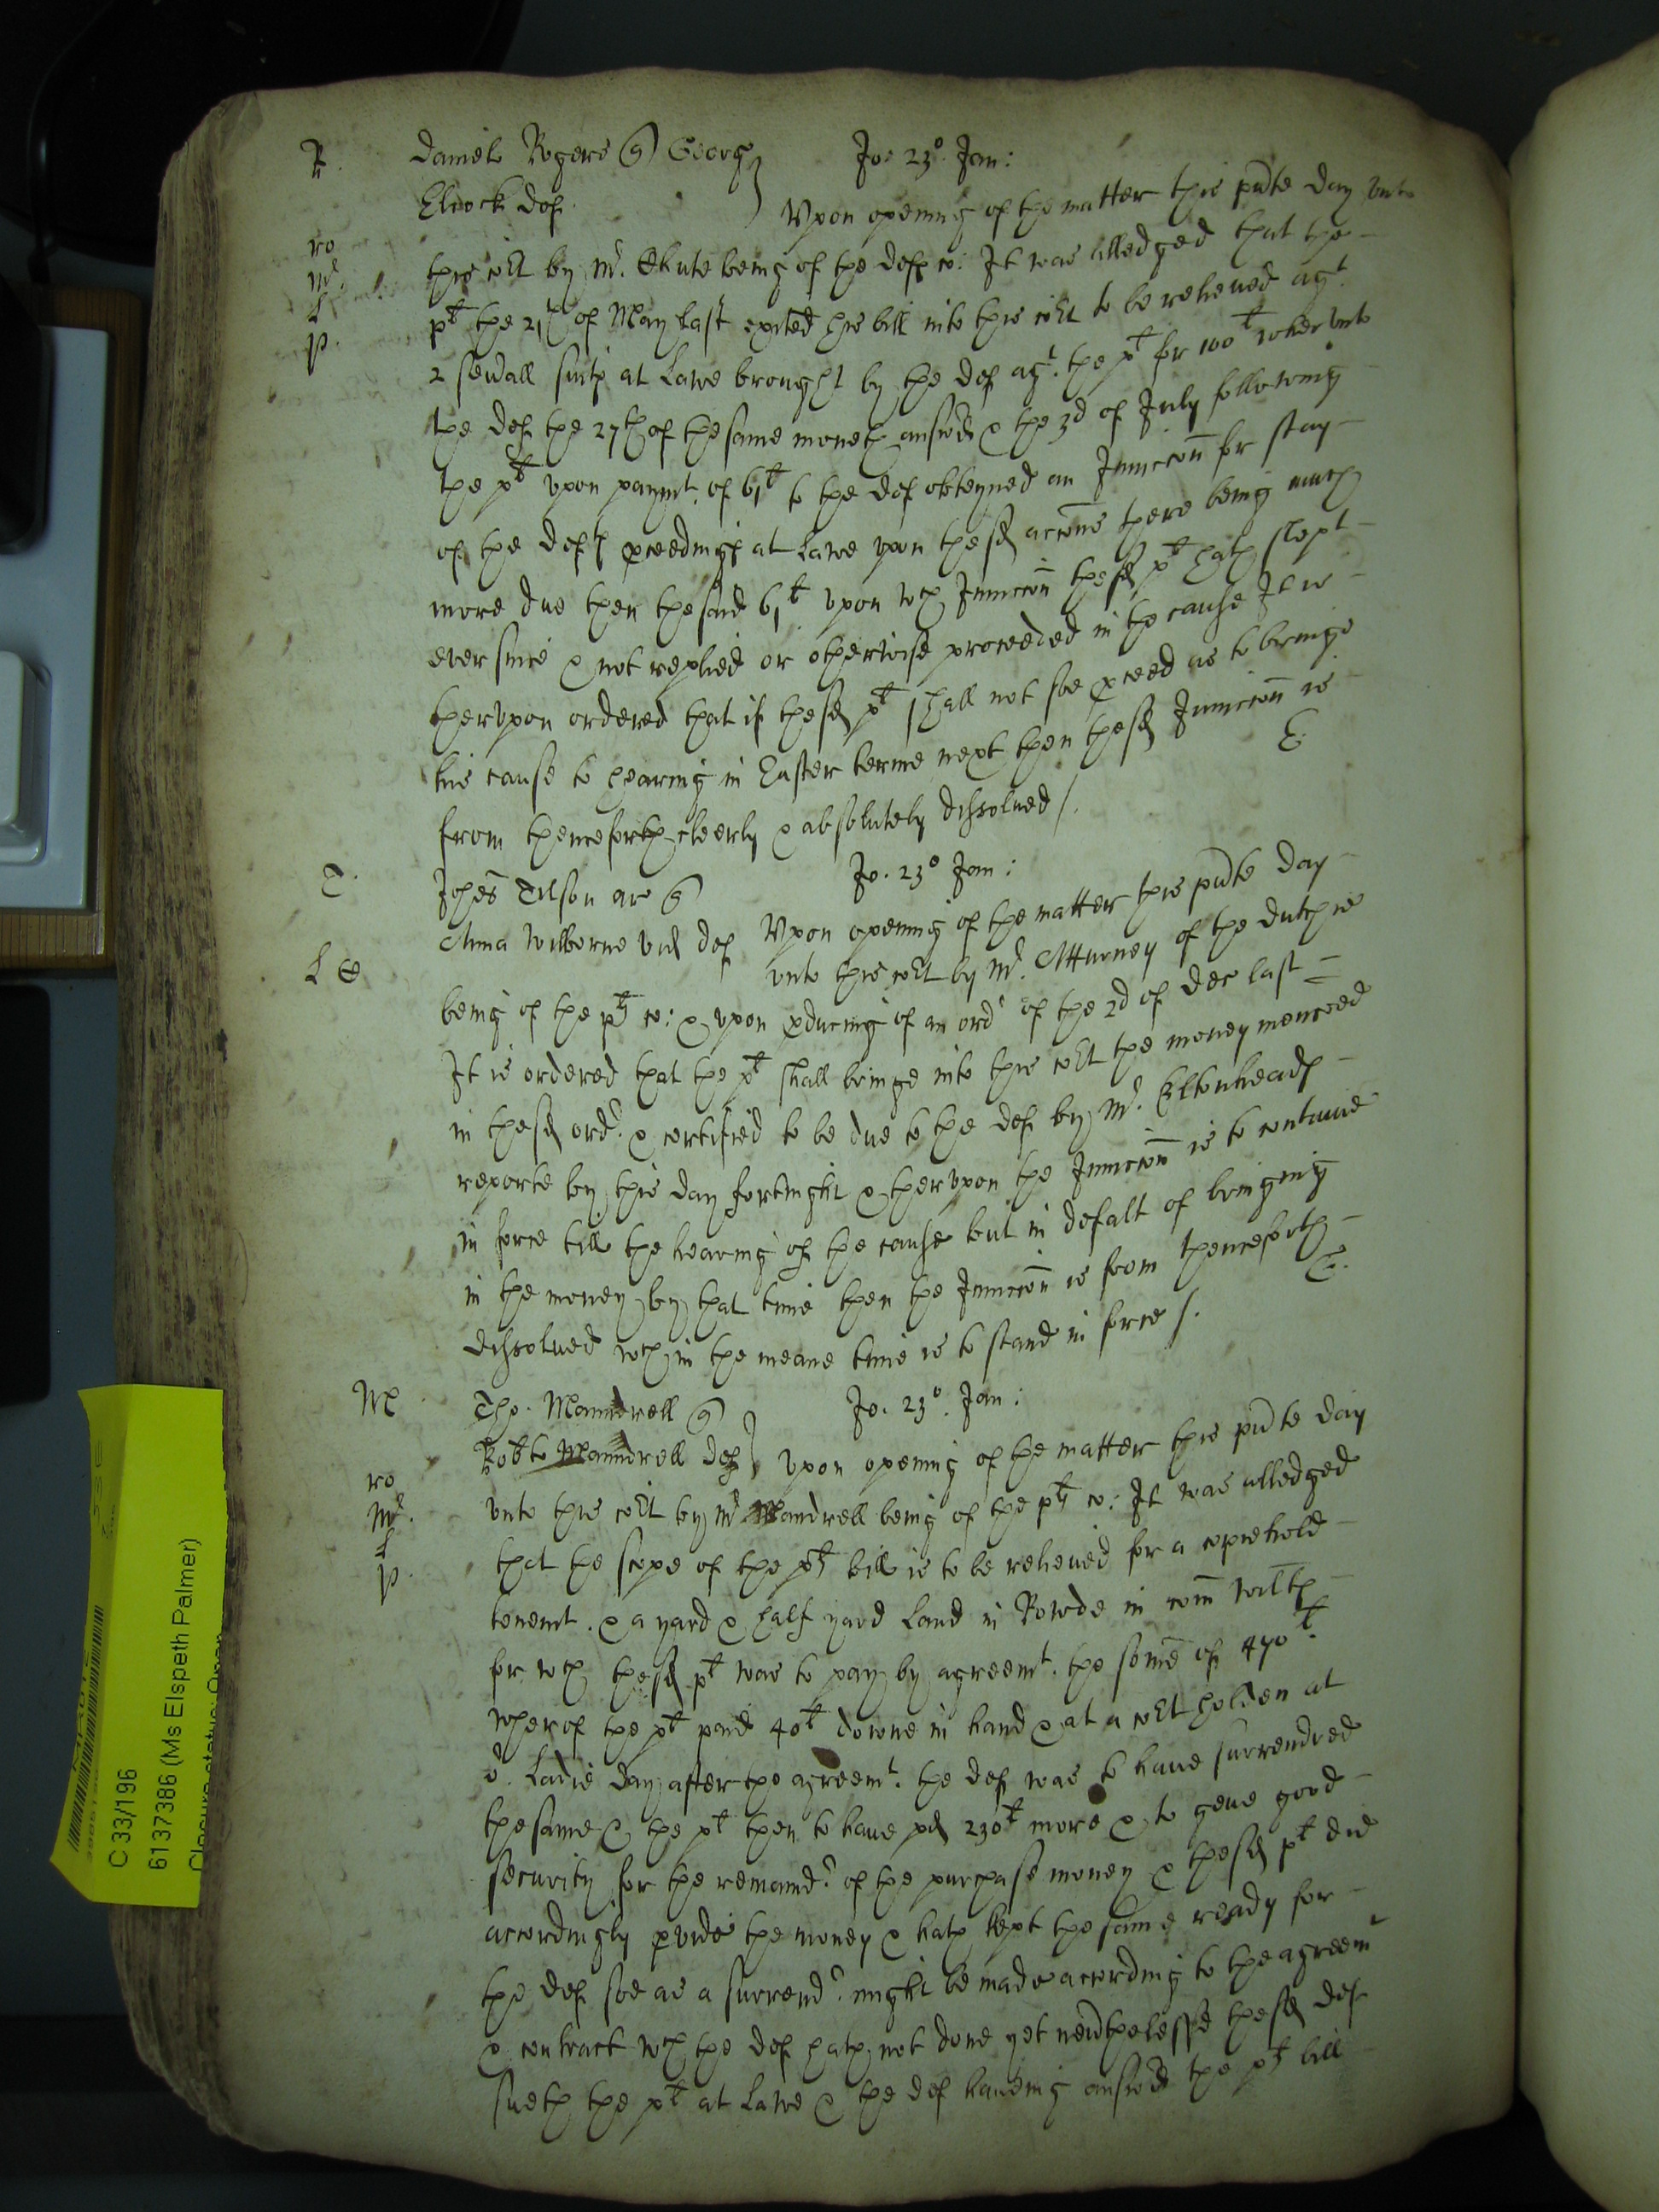 R. Daniel Rogers q George } Jo: 23º Jan:
Elcock def. Upon opening of the matter this pnte day unto
ro this cort by Mr. Chute being of the defs co: It was alledged that the
mr. plt the 21th of May last exited his bill into this cort to be relieved agt
L 2 sevall suits at Lawe brought by the def agt. the plt for 100l wherunto
p. the def the 27th of the same moneth answd & the 3d of July following
the plt upon paymt. of 61l to the def obteyned an Iniuccon for stay
of the defs pceedings at Lawe upon the sd accons there being much
more due then the said 61l upon wch Iniuccon the sd plt hath slept
ever since & not replied or otherwise proceeded in the cause It is
therupon ordered that if the sd plt shall not soe pceed as to bringe
the cause to hearing in Easter terme next then the sd Iniuccon is
from thenceforth cleerly & absolutely dissolved /. E.
T. Johes Tilson ar q Jo. 23º Jan:
Anna Wilborne vid def Upon opening of the matter this pnte day
L unto this cort by Mr. Atturney of the dutchie
being of the plts co: & upon pducing of an ordr of the 2d of Dec last
It is ordered that the plt shall bringe into this cort the money menconed
in the sd ordr. & certified to be due to the def by Mr. Eltonheads
reporte by this day fortnight & therupon the Iniuccon is to continue
in force till the hearing of the cause but in defalt of bringing
in the money by that time then the Iniuccon is from thenceforth
dissolved wch in the meane time is to stand in force /. E.
M Tho. Maundrell q Jo. 23º. Jan:
Robte Maundrell def } Upon opening of the matter this pnte day
ro unto this cort by Mr Mandrell being of the plts co: It was alledged
Mr. that the scope of the plts bill is to be relieved for a copiehold
L tenemt. & a yard & half yard Land in Rowde in com Wiltes
p. for wch the sd plt was to pay by agreemt. the some of 470l.
wherof the plt paid 40l downe in hand & at a cort holden at
or. Ladie day after the agreemt. the def was to have surrendred
the same & the plt then to have pd 230l more & to geve good
security for the remaindr. of the purchase money & the sd plt did
accordingly pvide the money & hath kept the same ready for
the def soe as a surrendr. might be made according to the agreemt
& contract wch the def hath not done yet nevthelesse the sd def
sueth the plt at Lawe & the def haveing answd the plts bill
C 33/196
6137386 (Ms Elspeth Palmer)
Closure status: Open